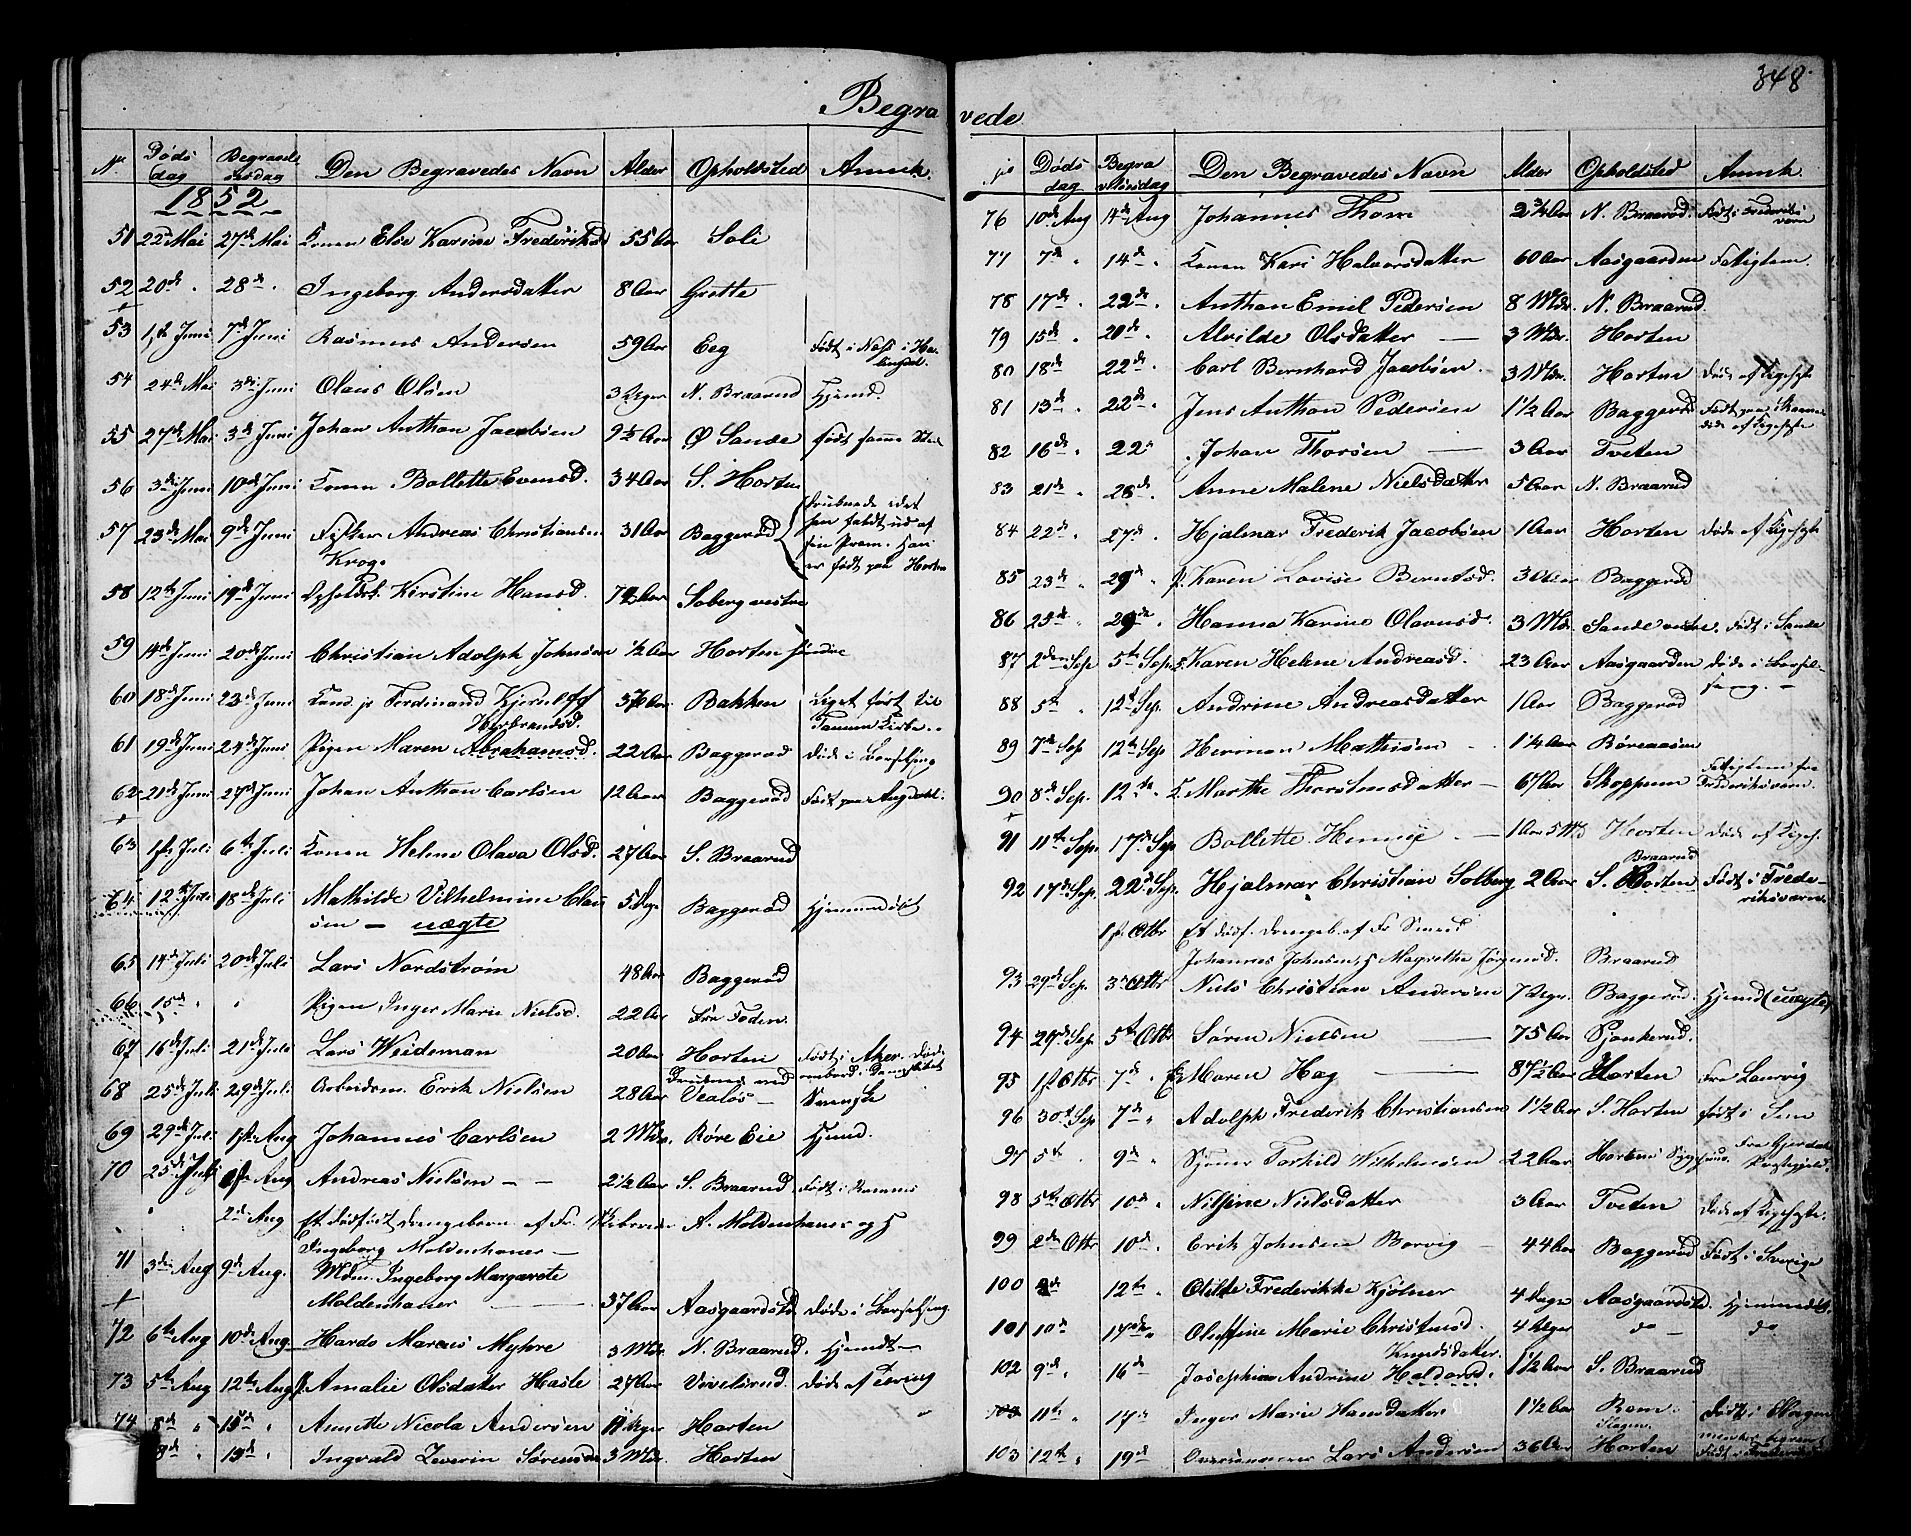 348
Begravede
N. Døds dag Begravelsesdag Den Begravedes Navn Alder Opholdsted Anmk.
1852
51 22 Mai 27de Mai Konen Else Karine Frederiksd 55 Aar Soli
52 20de " 28de " Ingeborg Andersdatter 8 Aar Grette
53 1ste Juni 7de Juni Rasmus Andersen 59 Aar Eeg Født i Næss i Hallingdal.
54 24de Mai 3die Juni Olaus Olsen 3 Uger N. Braarud Hjemd.
55 27de Mai 3die Juni Johan Anthon Jacobsen 9½ Aar Ø Sande født samme Sted
56 3die Juni 10de Juni Konen Bollette Evensd. 34 Aar S. Horten
57 23de Mai 9de Juni Fisker Andreas Christiansen Krog. 31 Aar Baggerød Druknede idet han faldt ud af sin Pram. Han er født paa Horten
58 12te Juni 19de Juni Opholdsk. Kirstine Hansd. 74 Aar Soberg vestre
59 14de Juni 20de Juni Christian Adolph Johnsen ½ Aar Horten søndre
60 18de Juni 23de Juni Cand. jr Ferdinand Kjerulff 37 Aar Bakken Liget ført til Tanum Kirke.
61 19de Juni 24de Juni Pigen Maren Abrahamsd. Herbrandsd. 22 Aar Baggerød Døde i Barselseng
62 21de Juni 27de Juni Johan Anthon Carlsen 12 Aar Baggerød Født paa Angdahl.
63 1ste Juli 6te Juli Konen Helene Olava Olsd. 27 Aar S. Braarud
64 12te Juli 18de Juli Mathilde Vilhelmine Clausen — uægte 5 Uger Baggerød Hjemmedøbt
65 14de Juli 20de Juli Lars Nordstrøm 48 Aar Baggerød
66 15de " " Pigen Inger Marie Nielsd. 22 Aar Fra Foden
67 16de Juli 21de Juli Lars Weideman 20 Aar Horten Født i Aker. Døde ombord i
68 25de Juli 29de Juli Arbeidsm. Erik Nielsen 28 Aar Vealøs — Svenske
69 29de Juli 1ste Aug Johannes Carlsen 2 Mdr. Røre Eie Hjemd.
70 25de Juli 1ste Aug Andreas Nielsen — — 2½ Aar S. Braarud Født i Ramnes
" 2de Aug Et dødfødt Drengebarn af Fr. A. Moldenhauer og H Ingeborg Moldenhauer —
71 3die Aug 9de Aug. Mdm. Ingeborg Margarete Moldenhauer 37 Aar Aasgaardstd Døde i Barselseng.
72 6te Aug 10de Aug. Hards Marcus Myhre 3 Mdr. N. Braarud. Hjemdt —
73 5te Aug 12te Aug Amalie Olsdatter Hasle 27 Aar Vivelsrud. Døde af Tæring
74 8de " 15de " Annette Nicola Andersen 11 Uger Horten "
8de " 15de " Ingvald Zeverin Sørensen 3 Mdr. Horten
Døds dag Begravelsesdag Den Begravedes Navn Alder Opholdsted Anmk.
76 10de Aug 14de Aug Johannes Thom 2¾ Aar N. Braarød. Født i Frederiksværn
77 7de " 14de " Konen Kari Halvorsdatter 60 Aar Aasgaarden Fattiglem.
78 17de " 22de " Anthon Emil Pedersen 8 Mdr. N. Braarud
79 15de 20de " Alvilde Olsdatter — 3 Mdr. Horten
80 18de 22de " Carl Bernhard Jacobsen 3 Mdr. Horten Døde af Kighoste
81 13de " 22de " Jens Anthon Pedersen 1½ Aar Baggerød døde af Kighoste
82 16de " 22de Johan Thorsen — 3 Aar Tveten
83 21de " 28de " Anne Malene Nielsdatter 5 Aar N. Braarud
84 22de " 27de " Hjalmar Frederik Jacobsen 1 Aar Horten Døde af Kighoste
85 23de " 29de " p. Karen Lovise Berntsd. 30 Aar Baggerød
86 25de " 29de " Hanna Karine Olavusd. 3 Mdr. Sande vestre. Født i Sande
87 2den Sep 5te Sep. Karen Helene Andreasd. 23 Aar Aasgaarden Døde i Barselseng. —
88 5te " 12te Sep. Andrine Andreasdatter 1 Aar Baggerød
89 7de Sep 12te Sep Herman Mathisen 1¼ Aar Børeaasen
90 8de Sep. 12te " K. Marthe Thorstensdatter — 67 Aar Skoppum Fattiglem fra Frederiksværn.
91 11te Sep. 17de Sep Bollette Hennig — 1 Aar 5 Md Horten Døde af Kigh.
92 17de Sep. 22de Sep. Hjalmar Christian Solberg 2 Aar S. Horten Braarud Født i Frederiksværn.
1ste Octbr Et dødf. Drengeb. af Fr Smed Johannes Johnsen, H Magrethe Jørgensd. Braarud
93 29de Sep. 3de Octbr Niels Christian Andersen 7 Uger. Baggerød. Hjemd (uægte)
94 29de Sep 5te Octbr Søren Nielsen — 75 Aar Sjonkerud.
95 1ste Octbr 7de " E. Maren Hag — 87½ Aar Horten Fra Laurvig
96 30te Sep 7de " Adolph Frederik Christiansen 1½ Aar S. Horten født i Sem
97 5te " 9de " Torkild Wilhelmsen 22 Aar Hortens Sygehuus. Fra Hjerdals Præstegjeld
98 5te Octbr 10de " Nilsine Nielsdatter 3 Aar Tveten Døde af Kighoste.
99 2de Octbr 10de " Erik Johnsen Borvig — 44 Aar Baggerød Født i Sverige
100 9de 12te " Otilde Frederikke Kjølner 4 Dage Aasgaardstd. Hjemmedøbt.
101 10de 17de " Oluffine Marie Christensd. 4 Uger do — do
102 9de " 16de Josephine Andrine Haldorsd. Knudsdatter. 1½ Aar S. Braarud
103 11te " 17de Inger Marie Hansdatter 1½ Aar Rom. Slagen. Født i Slagen
103 12te " 19de Lars Andersen 36 Aar Horten